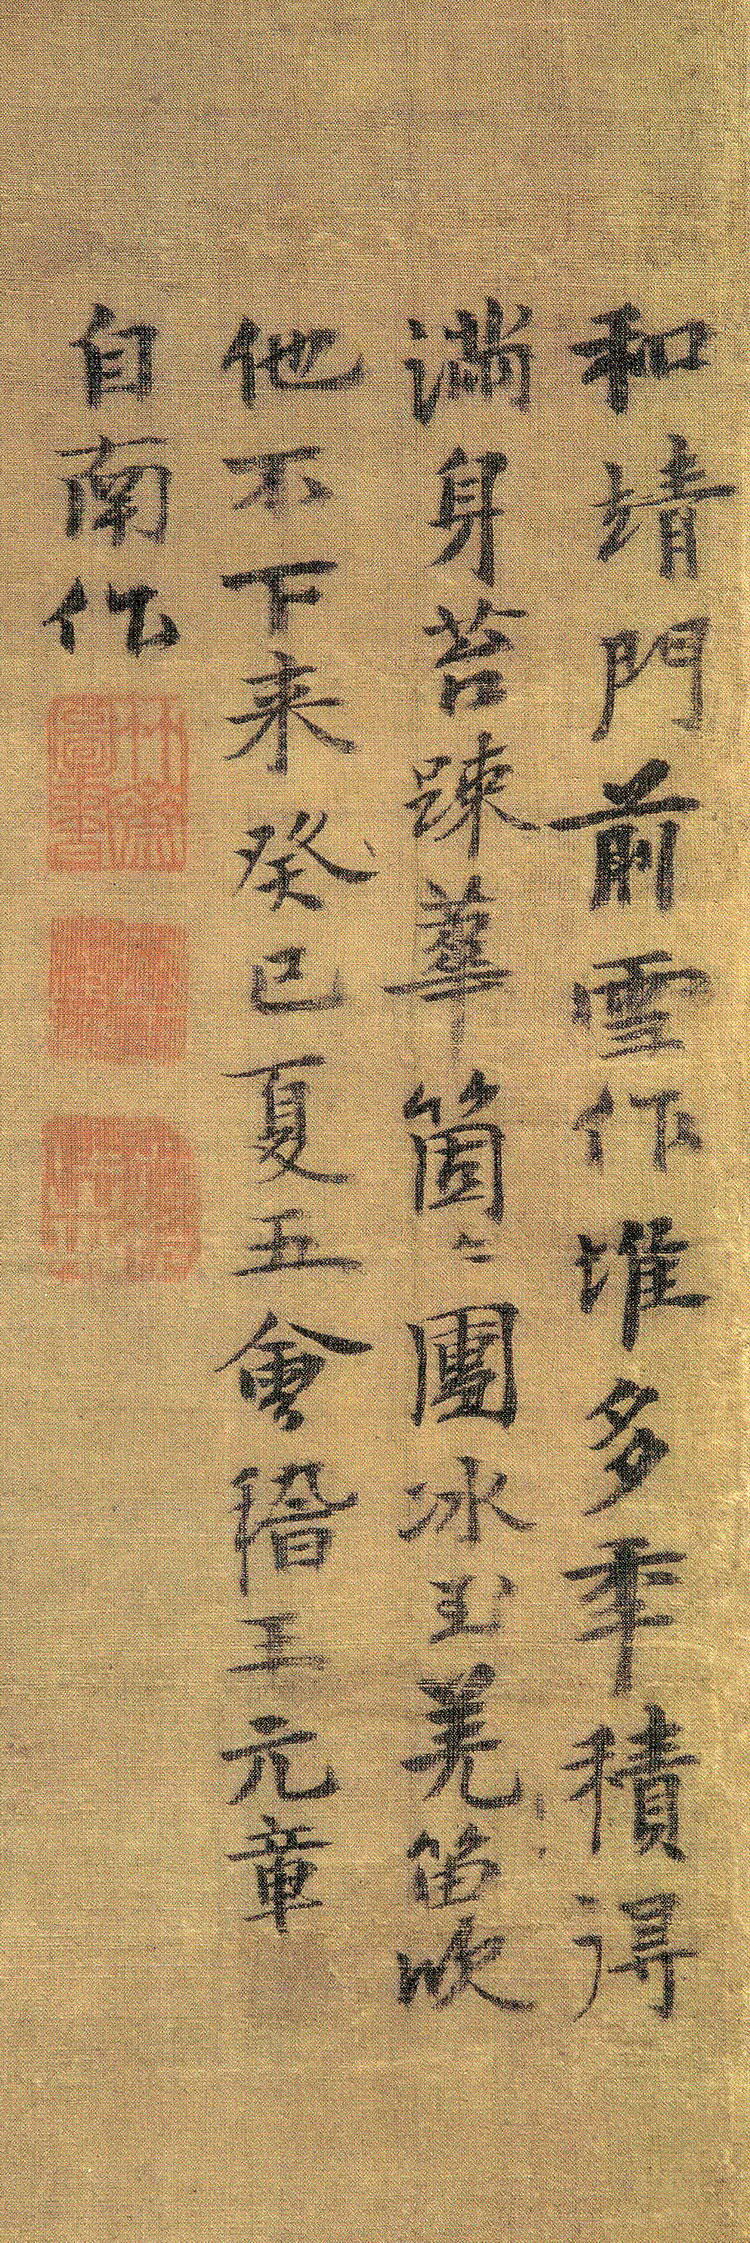 和靖門前雪作堆多年積得
滿身苔踈華箇〻團冰玉羌笛吹
他不下来癸巳夏五會稽王元章
自南作